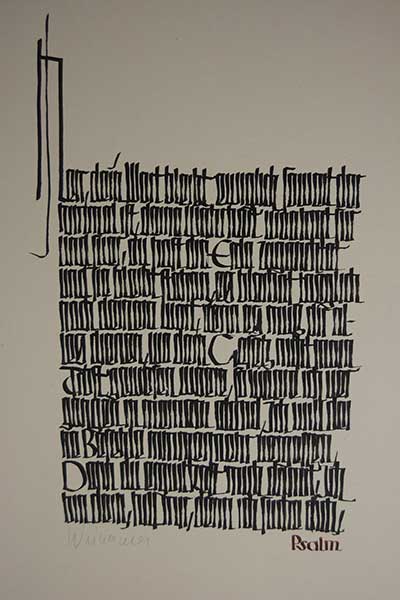 Herr, dein Wort bleibt ewiglich soweit der
Himmel ist, deine Wahrheit währet für
und für, du hast die Erde zugerichtet
und sie bleibt stehen, es bleibt täglich
nach deinem Wort, denn es muß dir al-
les dienen, wo dein Gesetz nicht mein
Trost gewesen wäre,
in meinem Elend, ich will
Befehle nimmermehr vergessen
Denn du erquickest mich damit, ich
bin dein, hilf mir, denn ich
Psalm